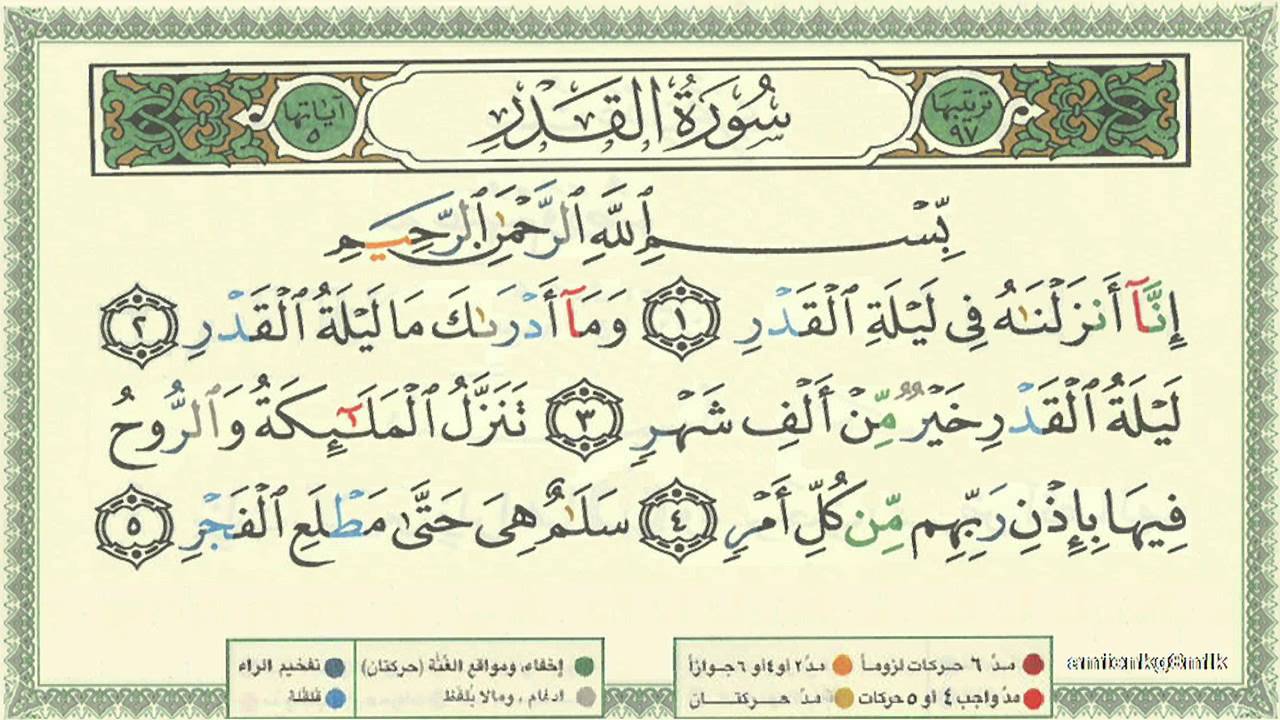 ترتيبها ٩٧ سُورَةُ القَدْرِ آياتها ٥
بِّسْمِ ٱللَّهِ ٱلرَّحْمَٰنِ ٱلرَّحِيمِ
إِنَّآ أَنزَلْنَٰهُ فِى لَيْلَةِ ٱلْقَدْرِ ١ وَمَآ أَدْرَىٰكَ مَا لَيْلَةُ ٱلْقَدْرِ ٢
لَيْلَةُ ٱلْقَدْرِ خَيْرٌ مِّنْ أَلْفِ شَهْرٍ ٣ تَنَزَّلُ ٱلْمَلَٰٓئِكَةُ وَٱلرُّوحُ
فِيهَا بِإِذْنِ رَبِّهِم مِّن كُلِّ أَمْرٍ ٤ سَلَٰمٌ هِىَ حَتَّىٰ مَطْلَعِ ٱلْفَجْرِ ٥
مدّ ٦ حركات لزوماً مدّ ٢ أو ٤ أو ٦ جوازاً
مدّ واجب ٤ أو ٥ حركات مدّ حركتان
إخفاء، ومواقع الغُنَّة (حركتان) تفخيم الراء
ادغام، ومالا يُلفَظ قلقلة